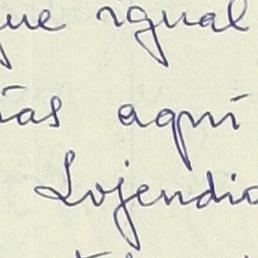 que igual
ías aquí
Lojendio